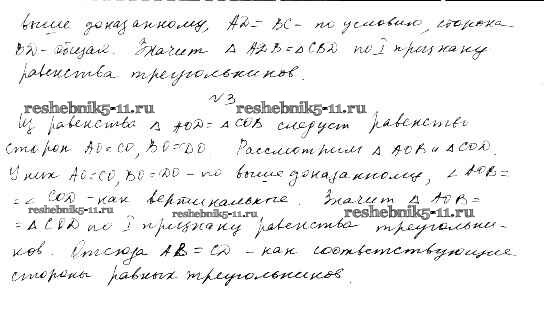 выше доказанному, AD = BC - по условию, сторона
BD - общая. Значит △ ADB = △ CBD по I признаку
равенства треугольников.
№3
reshebnik5-11.ru reshebnik5-11.ru
Из равенства △ AOD = △ COB следует равенство
сторон AO = CO, BO = DO Рассмотрим △ AOB и △ COD.
У них AO = CO, BO = DO - по выше доказанному, ∠ AOB =
= ∠ COD - как вертикальные. Значит △ AOB =
reshebnik5-11.ru reshebnik5-11.ru reshebnik5-11.ru
= △ COD по I признаку равенства треугольни-
ков. Отсюда AB = CD - как соответствующие
стороны равных треугольников.